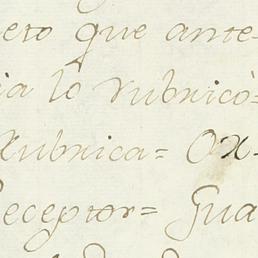 ero que ante-
ia lo rubricò=
Rubrica= Ox-
Receptor= Gua